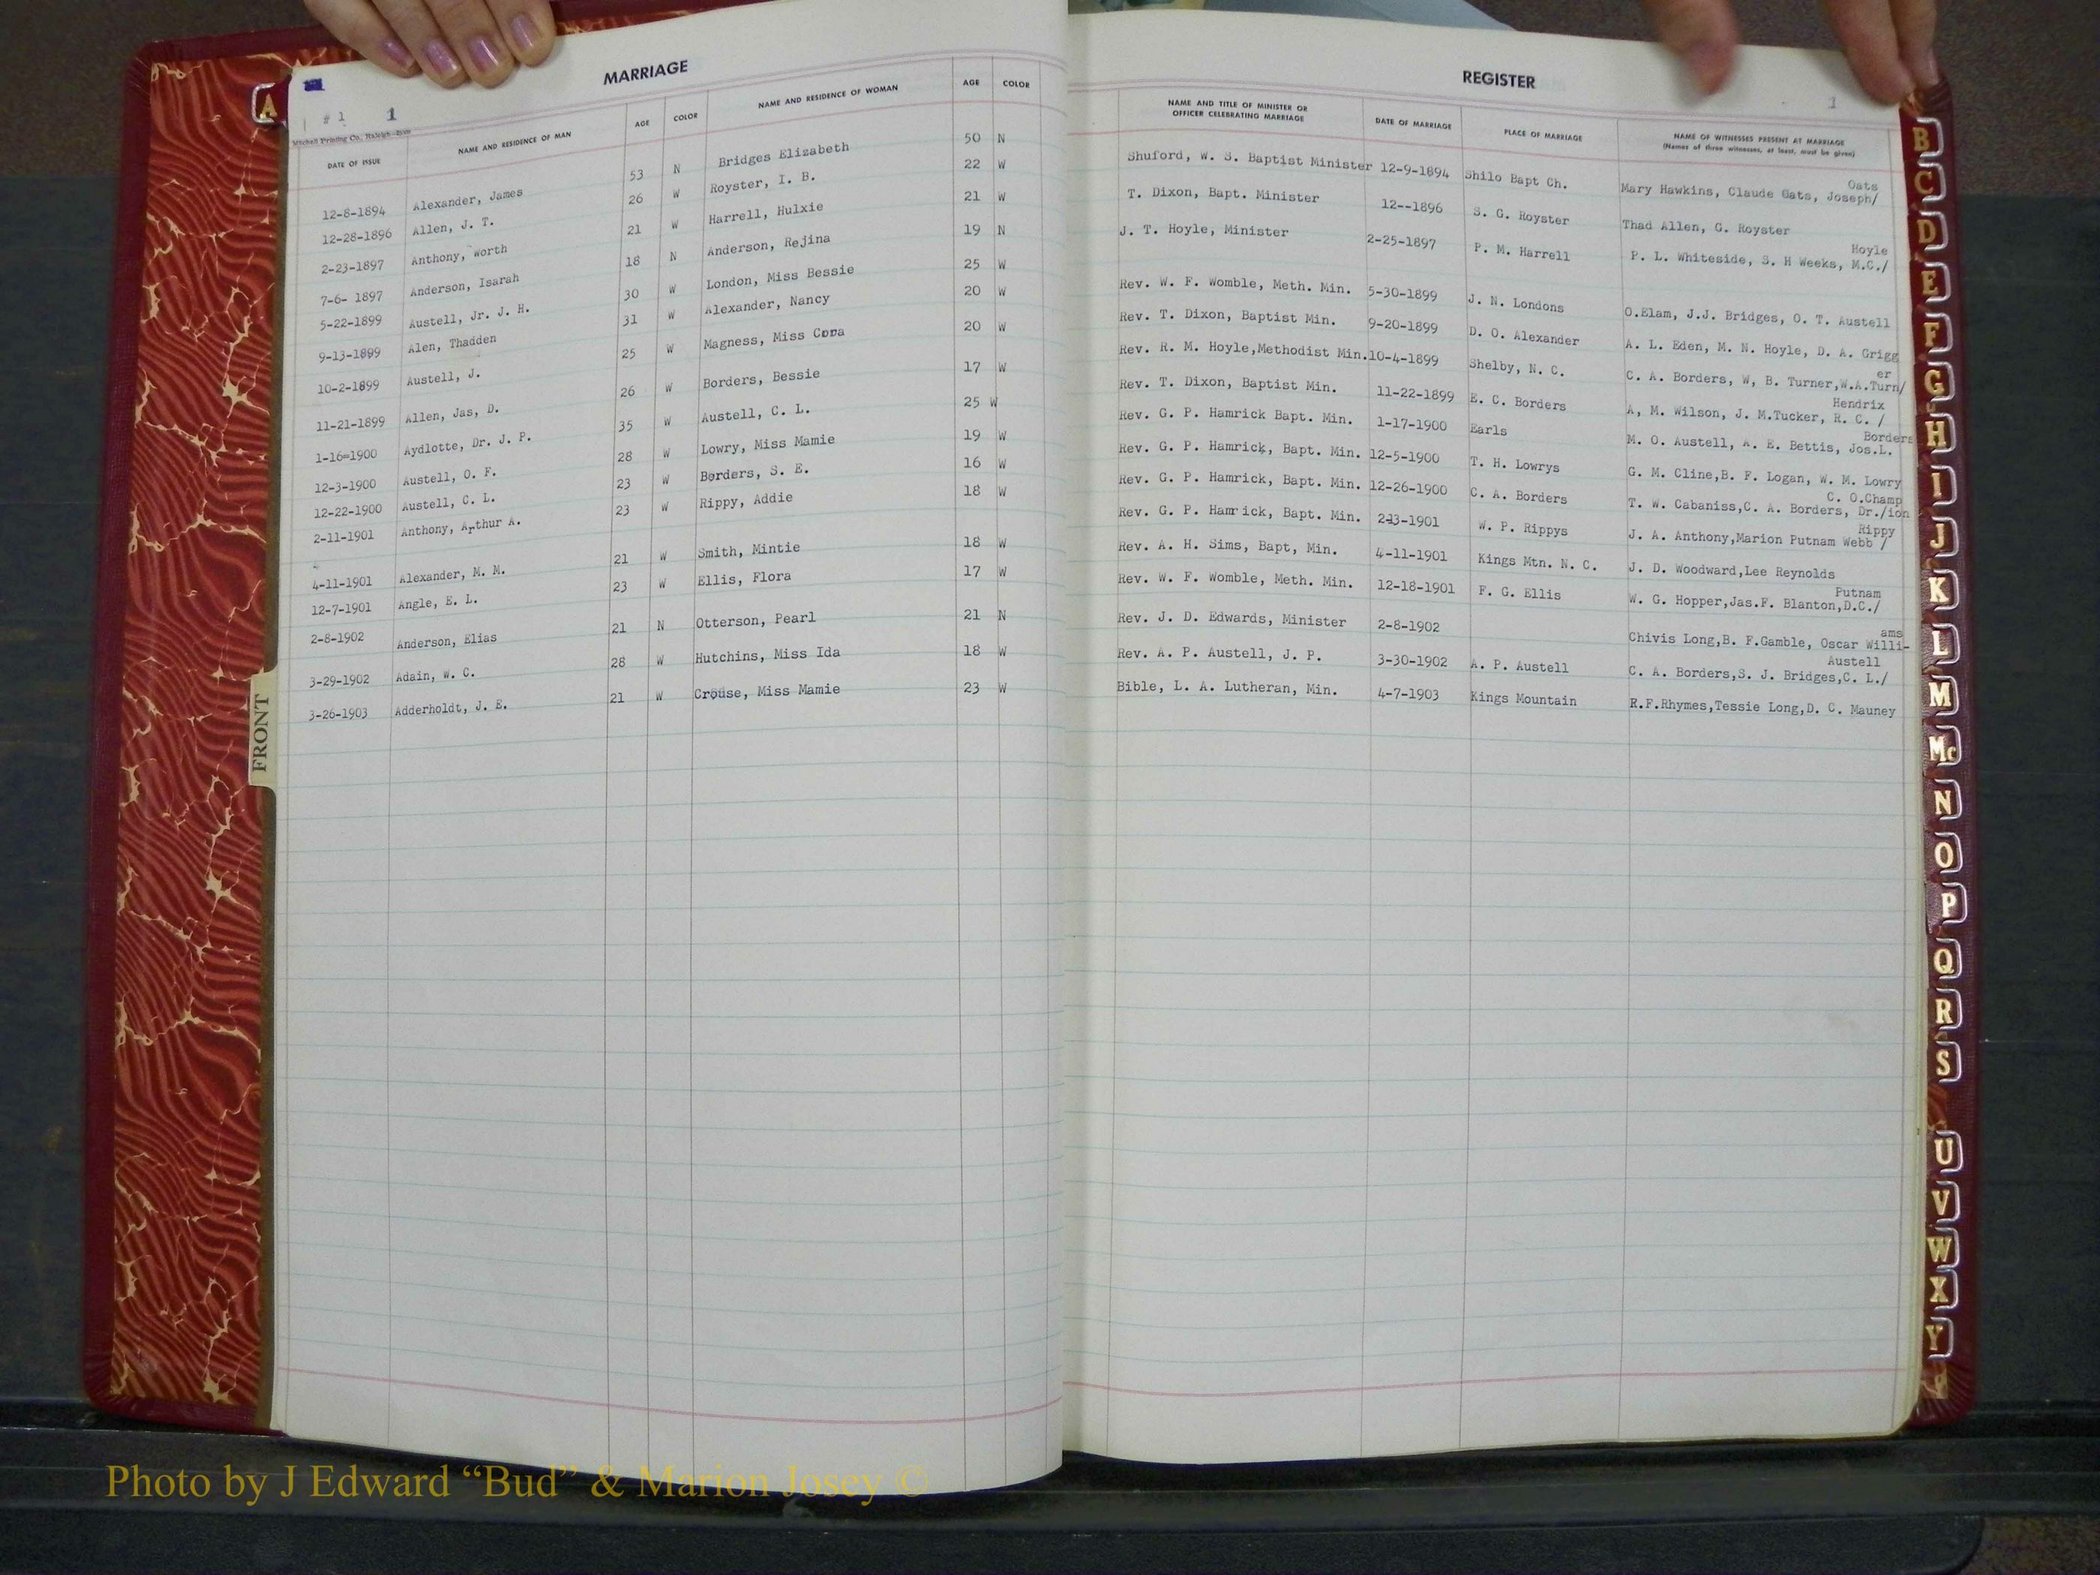 A
# 1 1
MARRIAGE
Mitchell Printing Co., Raleigh
DATE OF ISSUE NAME AND RESIDENCE OF MAN AGE COLOR NAME AND RESIDENCE OF WOMAN AGE COLOR
12-8-1894 Alexander, James 53 N Bridges Elizabeth 50 N
12-28-1896 Allen, J. T. 26 W Royster, I. B. 22 W
2-23-1897 Anthony, Worth 21 W Harrell, Hulxie 21 W
7-6- 1897 Anderson, Isarah 18 N Anderson, Rejina 19 N
5-22-1899 Austell, Jr. J. H. 30 W London, Miss Bessie 25 W
9-13-1899 Alen, Thadden 31 W Alexander, Nancy 20 W
10-2-1899 Austell, J. 25 W Magness, Miss Cora 20 W
11-21-1899 Allen, Jas, D. 26 W Borders, Bessie 17 W
1-16-1900 Aydlotte, Dr. J. P. 35 W Austell, C. L. 25 W
12-3-1900 Austell, O. F. 28 W Lowry, Miss Mamie 19 W
12-22-1900 Austell, C. L. 23 W Borders, S. E. 16 W
2-11-1901 Anthony, Arthur A. 23 W Rippy, Addie 18 W
4-11-1901 Alexander, M. M. 21 W Smith, Mintie 18 W
12-7-1901 Angle, E. L. 23 W Ellis, Flora 17 W
2-8-1902 Anderson, Elias 21 N Otterson, Pearl 21 N
3-29-1902 Adain, W. C. 28 W Hutchins, Miss Ida 18 W
3-26-1903 Adderholdt, J. E. 21 W Crouse, Miss Mamie 23 W
FRONT
REGISTER
1
NAME AND TITLE OF MINISTER OR
OFFICER CELEBRATING MARRIAGE DATE OF MARRIAGE PLACE OF MARRIAGE NAME OF WITNESSES PRESENT AT MARRIAGE
(Names of three witnesses, at least, must be given)
Oats
Shuford, W. S. Baptist Minister 12-9-1894 Shilo Bapt Ch. Mary Hawkins, Claude Oats, Joseph/
T. Dixon, Bapt. Minister 12--1896 S. G. Royster Thad Allen, G. Royster
Hoyle
J. T. Hoyle, Minister 2-25-1897 P. M. Harrell P. L. Whiteside, S. H Weeks, M.C./
Rev. W. F. Womble, Meth. Min. 5-30-1899 J. N. Londons O.Elam, J.J. Bridges, O. T. Austell
Rev. T. Dixon, Baptist Min. 9-20-1899 D. O. Alexander A. L. Eden, M. N. Hoyle, D. A. Grigg
er
Rev. R. M. Hoyle,Methodist Min.10-4-1899 Shelby, N. C. C. A. Borders, W, B. Turner,W.A.Turn/
Hendrix
Rev. T. Dixon, Baptist Min. 11-22-1899 E. C. Borders A, M. Wilson, J. M.Tucker, R. C. /
Borders
Rev. G. P. Hamrick Bapt. Min. 1-17-1900 Earls M. O. Austell, A. E. Bettis, Jos.L.
Rev. G. P. Hamrick, Bapt. Min. 12-5-1900 T. H. Lowrys G. M. Cline,B. F. Logan, W. M. Lowry
C. O.Champ
Rev. G. P. Hamrick, Bapt. Min. 12-26-1900 C. A. Borders T. W. Cabaniss,C. A. Borders, Dr./ion
Rippy
Rev. G. P. Hamrick, Bapt. Min. 2-13-1901 W. P. Rippys J. A. Anthony,Marion Putnam Webb /
Rev. A. H. Sims, Bapt, Min. 4-11-1901 Kings Mtn. N. C. J. D. Woodward,Lee Reynolds
Putnam
Rev. W. F. Womble, Meth. Min. 12-18-1901 F. G. Ellis W. G. Hopper,Jas.F. Blanton,D.C./
ams
Rev. J. D. Edwards, Minister 2-8-1902 Chivis Long,B. F.Gamble, Oscar Willi-
Austell
Rev. A. P. Austell, J. P. 3-30-1902 A. P. Austell C. A. Borders,S. J. Bridges,C. L./
Bible, L. A. Lutheran, Min. 4-7-1903 Kings Mountain R.F.Rhymes,Tessie Long,D. C. Mauney
B
C
D
E
F
G
H
I
J
K
L
M
Mc
N
O
P
Q
R
S
U
V
W
X
Y
Photo by J Edward “Bud” & Marion Josey ©